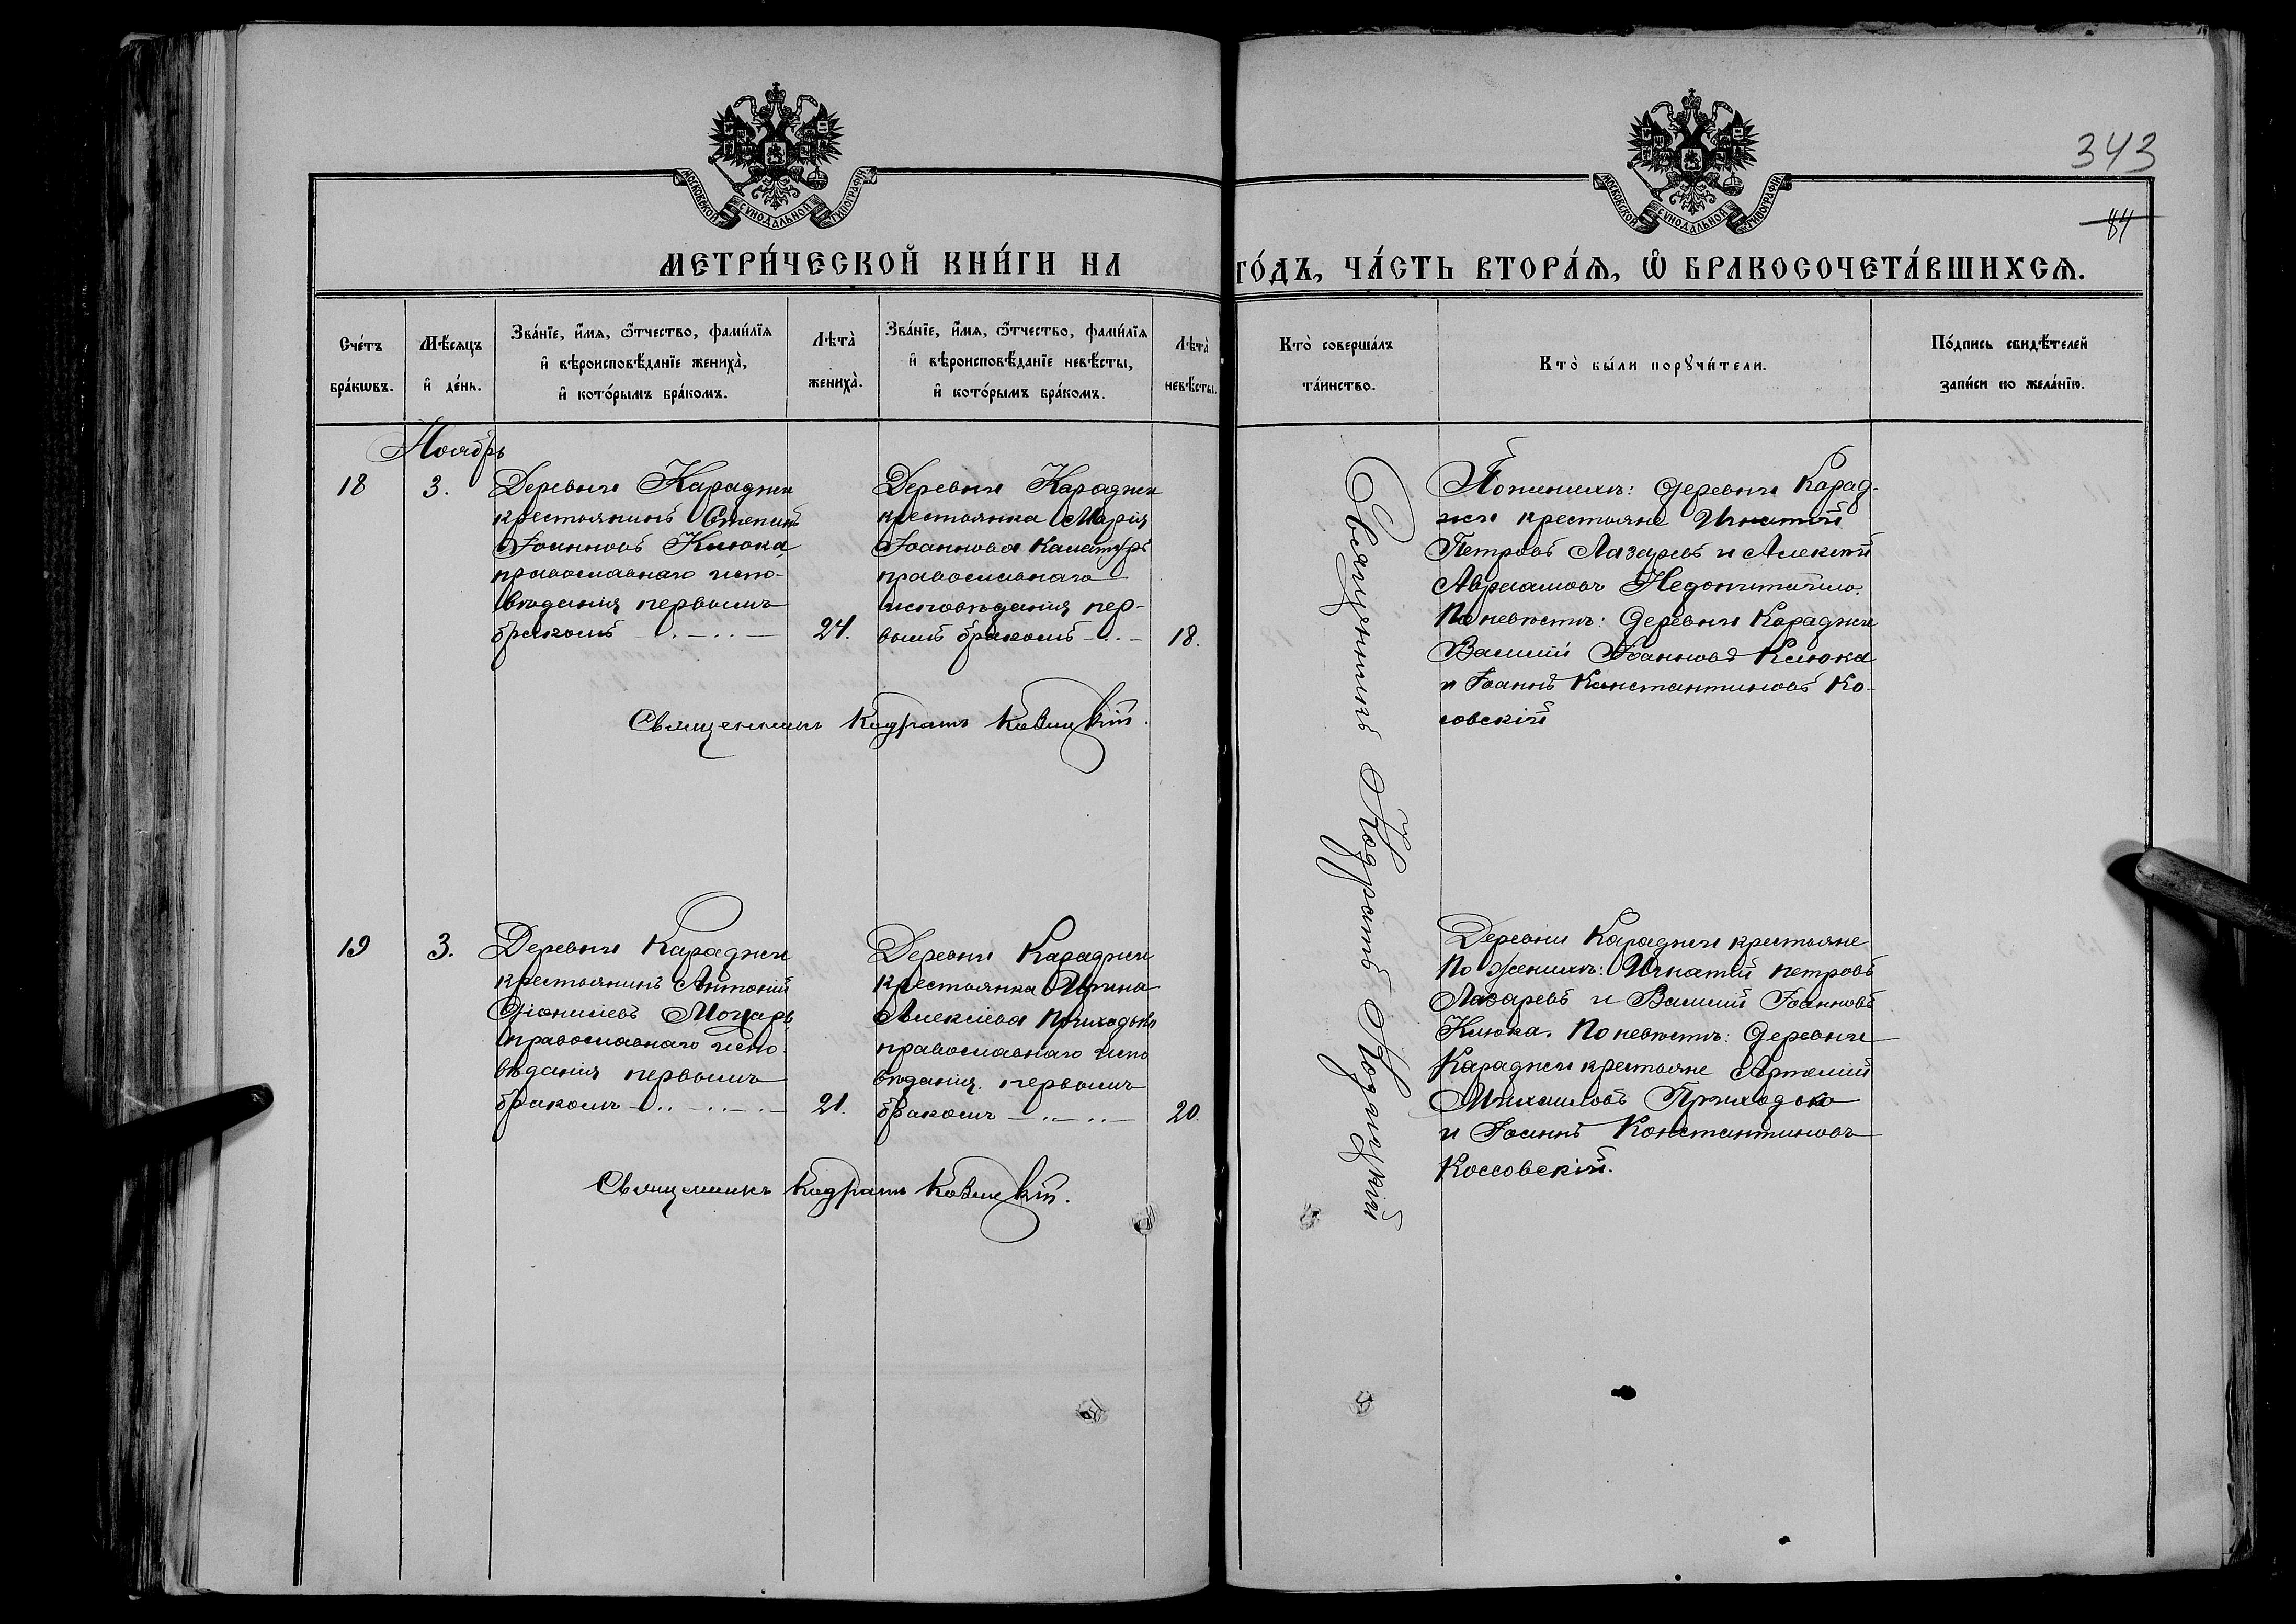 343
84
МОСКОВСКОЙ СѴНОДАЛЬНОЙ ТИПОГРАФІИ
МОСКОВСКОЙ СѴНОДАЛЬНОЙ ТИПОГРАФІИ
МЕТРИ́ЧЕСКОЙ КНИ́ГИ НА
ГО́ДЪ, ЧА́СТЬ ВТОРА́Ѧ, Ѽ БРАКОСОЧЕТА́ВШИХСѦ.
Сче́тъ
бра́кѡвъ.
Мѣ́сяцъ
и҆ де́нь.
Зва́нїе, и҆́мя, ѻ҆́тчество, фами́лїя
и҆ вѣроисповѣ́данїе жениха̀,
и҆ кото́рымъ бра́комъ.
Лѣта̀
жениха̀.
Зва́нїе, и҆́мя, ѻ҆́тчество, фами́лїя
и҆ вѣроисповѣ́данїе невѣ́сты,
и҆ кото́рымъ бра́комъ.
Лѣта̀
невѣ́сты.
Кто̀ соверша́лъ
та́инство.
Кто̀ бы́ли порꙋчи́тели.
По́дпись свидѣ́телей
за́писи по жела́нїю.
Ноябрь
18
3.
Деревни Караджи
крестьянинъ Стефанъ
Іоанновъ Клюка
православнаго испо-
вѣданія первымъ
бракомъ
24.
Деревни Караджи
крестьянка Марія
Іоаннова Калатуръ
православнаго
исповѣданія пер-
вымъ бракомъ
18.
Священникъ Кодратъ Ковницкій.
Священникъ Кодратъ Ковницкій
По женихѣ: деревни Карад-
жи крестьяне Игнатій
Петровъ Лазаревъ и Алексѣй
Авраамовъ Недопитайло.
По невѣстѣ: деревни Караджи
Василій Іоанновъ Клюка
и Іоаннъ Константиновъ Ко-
совскій
19
3.
Деревни Караджи
крестьянинъ Антоній
Діонисіевъ Моцарь
православнаго испо-
вѣданія первымъ
бракомъ
21.
Деревни Караджи
крестьянка Ирина
Алексіева Приходько
православнаго испо
вѣданія первымъ
бракомъ
20.
Священникъ Кодратъ Ковницкій.
Деревни Караджи крестьяне
По женихѣ: Игнатій Петровъ
Лазаревъ и Василій Іоанновъ
Клюка. По невѣстѣ: деревни
Караджи крестьяне Артемій
Михаиловъ Приходько
и Іоаннъ Константиновъ
Коссовскій.